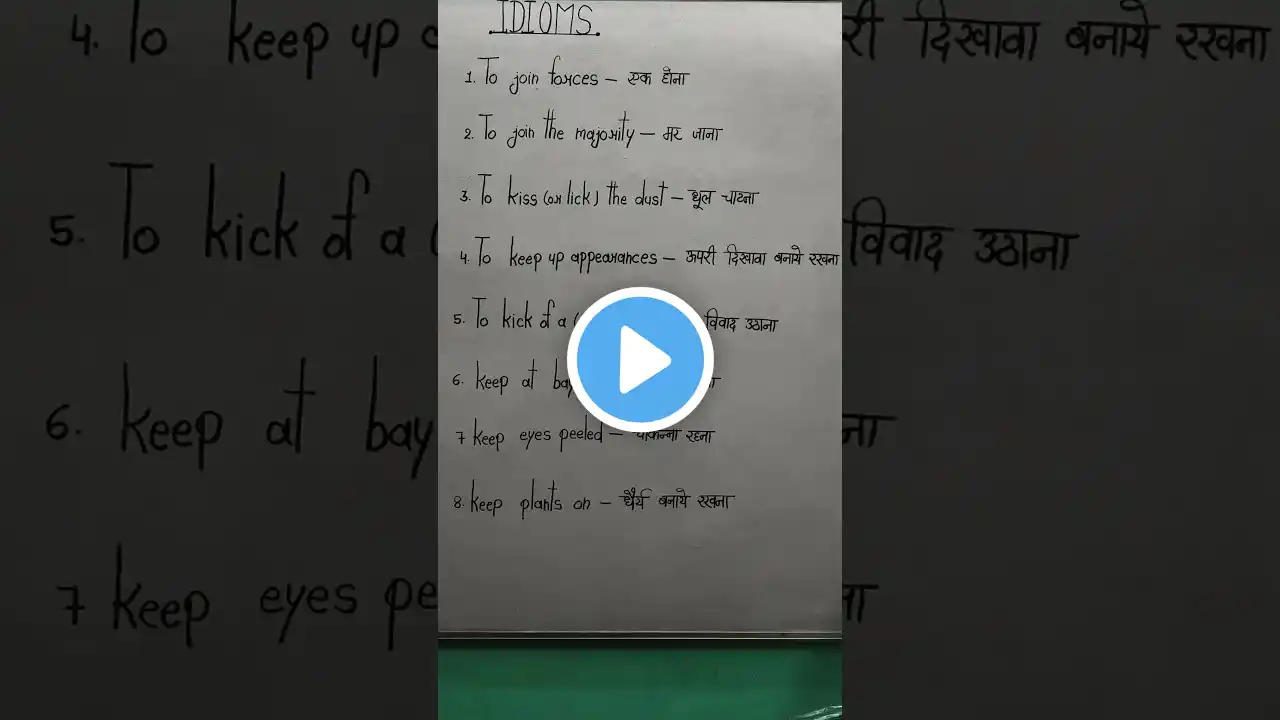 IDIOMS.
1. To join forces – एक होना
2. To join the majority – मर जाना
3. To kiss (or lick) the dust – धूल चाटना
4. To keep up appearances – ऊपरी दिखावा बनाये रखना
5. To kick of a विवाद उठाना
6. keep at bay
7 keep eyes peeled – चौकन्ना रहना
8. keep plants on – धैर्य बनाये रखना